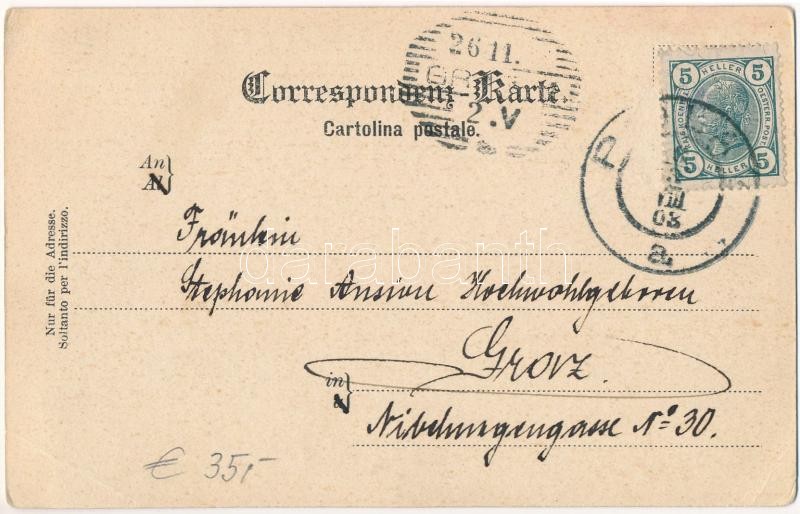 26 11.
GRAZ
2.V
Correspondenz-Karte
Cartolina postale.
5 HELLER 5
KAIS. KOENIGL. OESTERR. POST.
5 HELLER 5
VIII
03
a.
An
Al
Fräulein
Stephanie Ansion Hochwohlgeboren
darabanth
in
a
Graz.
Nibelungengasse No 30.
Nur für die Adresse.
Soltanto per l'indirizzo.
€ 35,-